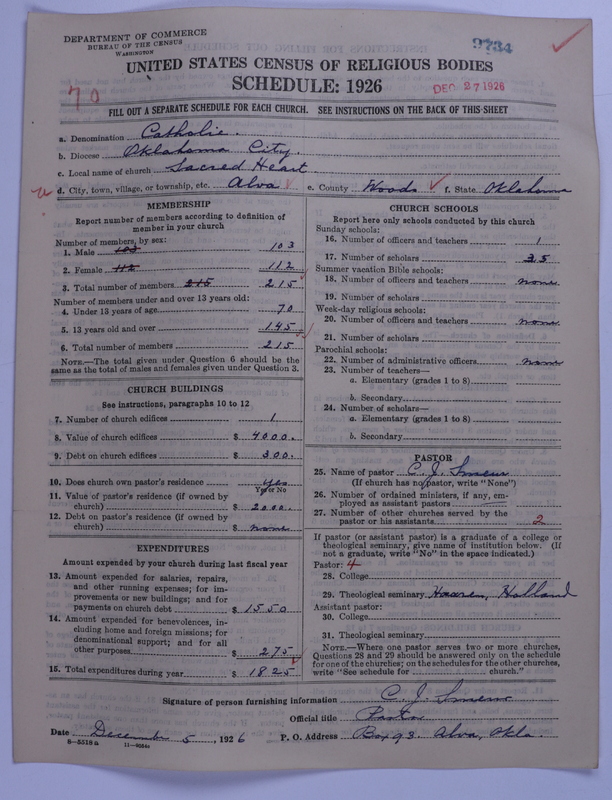 DEPARTMENT OF COMMERCE
BUREAU OF THE CENSUS
WASHINGTON
9734
UNITED STATES CENSUS OF RELIGIOUS BODIES
SCHEDULE: 1926
DEC 27 1926
70
FILL OUT A SEPARATE SCHEDULE FOR EACH CHURCH. SEE INSTRUCTIONS ON THE BACK OF THIS SHEET
a. Denomination Catholic.
b. Diocese Oklahoma City.
c. Local name of church Sacred Heart
d. City, town, village, or township, etc. Alva e. County Woods f. State Oklahoma
MEMBERSHIP
Report number of members according to definition of
member in your church
Number of members, by sex:
1. Male 103 103
2. Female 112 112
3. Total number of members 215 215
Number of members under and over 13 years old:
4. Under 13 years of age 70
5. 13 years old and over 145
6. Total number of members 215
NOTE.—The total given under Question 6 should be the
same as the total of males and females given under Question 3.
CHURCH BUILDINGS
See instructions, paragraphs 10 to 12
7. Number of church edifices 1
8. Value of church edifices $ 4000.
9. Debt on church edifices $ 300.
10. Does church own pastor's residence yes
Yes or No
11. Value of pastor's residence (if owned by
church) $ 2000.
12. Debt on pastor's residence (if owned by
church) $ none
EXPENDITURES
Amount expended by your church during last fiscal year
13. Amount expended for salaries, repairs,
and other running expenses; for im-
provements or new buildings; and for
payments on church debt $ 1550
14. Amount expended for benevolences, in-
cluding home and foreign missions; for
denominational support; and for all
other purposes $ 275
15. Total expenditures during year $ 1825
CHURCH SCHOOLS
Report here only schools conducted by this church
Sunday schools:
16. Number of officers and teachers 1
17. Number of scholars 35
Summer vacation Bible schools:
18. Number of officers and teachers none
19. Number of scholars
Week-day religious schools:
20. Number of officers and teachers none
21. Number of scholars
Parochial schools:
22. Number of administrative officers none
23. Number of teachers—
a. Elementary (grades 1 to 8)
b. Secondary
24. Number of scholars—
a. Elementary (grades 1 to 8)
b. Secondary
PASTOR
25. Name of pastor C. J.
(If church has no pastor, write "None")
26. Number of ordained ministers, if any, em-
ployed as assistant pastors
27. Number of other churches served by the
pastor or his assistants 2
If pastor (or assistant pastor) is a graduate of a college or
theological seminary, give name of institution below. (If
not a graduate, write "No" in the space indicated.)
Pastor: 4
28. College
29. Theological seminary Holland
Assistant pastor:
30. College
31. Theological seminary
NOTE.—Where one pastor serves two or more churches,
Questions 28 and 29 should be answered only on the schedule
for one of the churches; on the schedules for the other churches,
write "See schedule for church."
Signature of person furnishing information C. J.
Official title Pastor
Date December 5, 1926 P. O. Address Box 93 Alva, Okla.
8—5518a